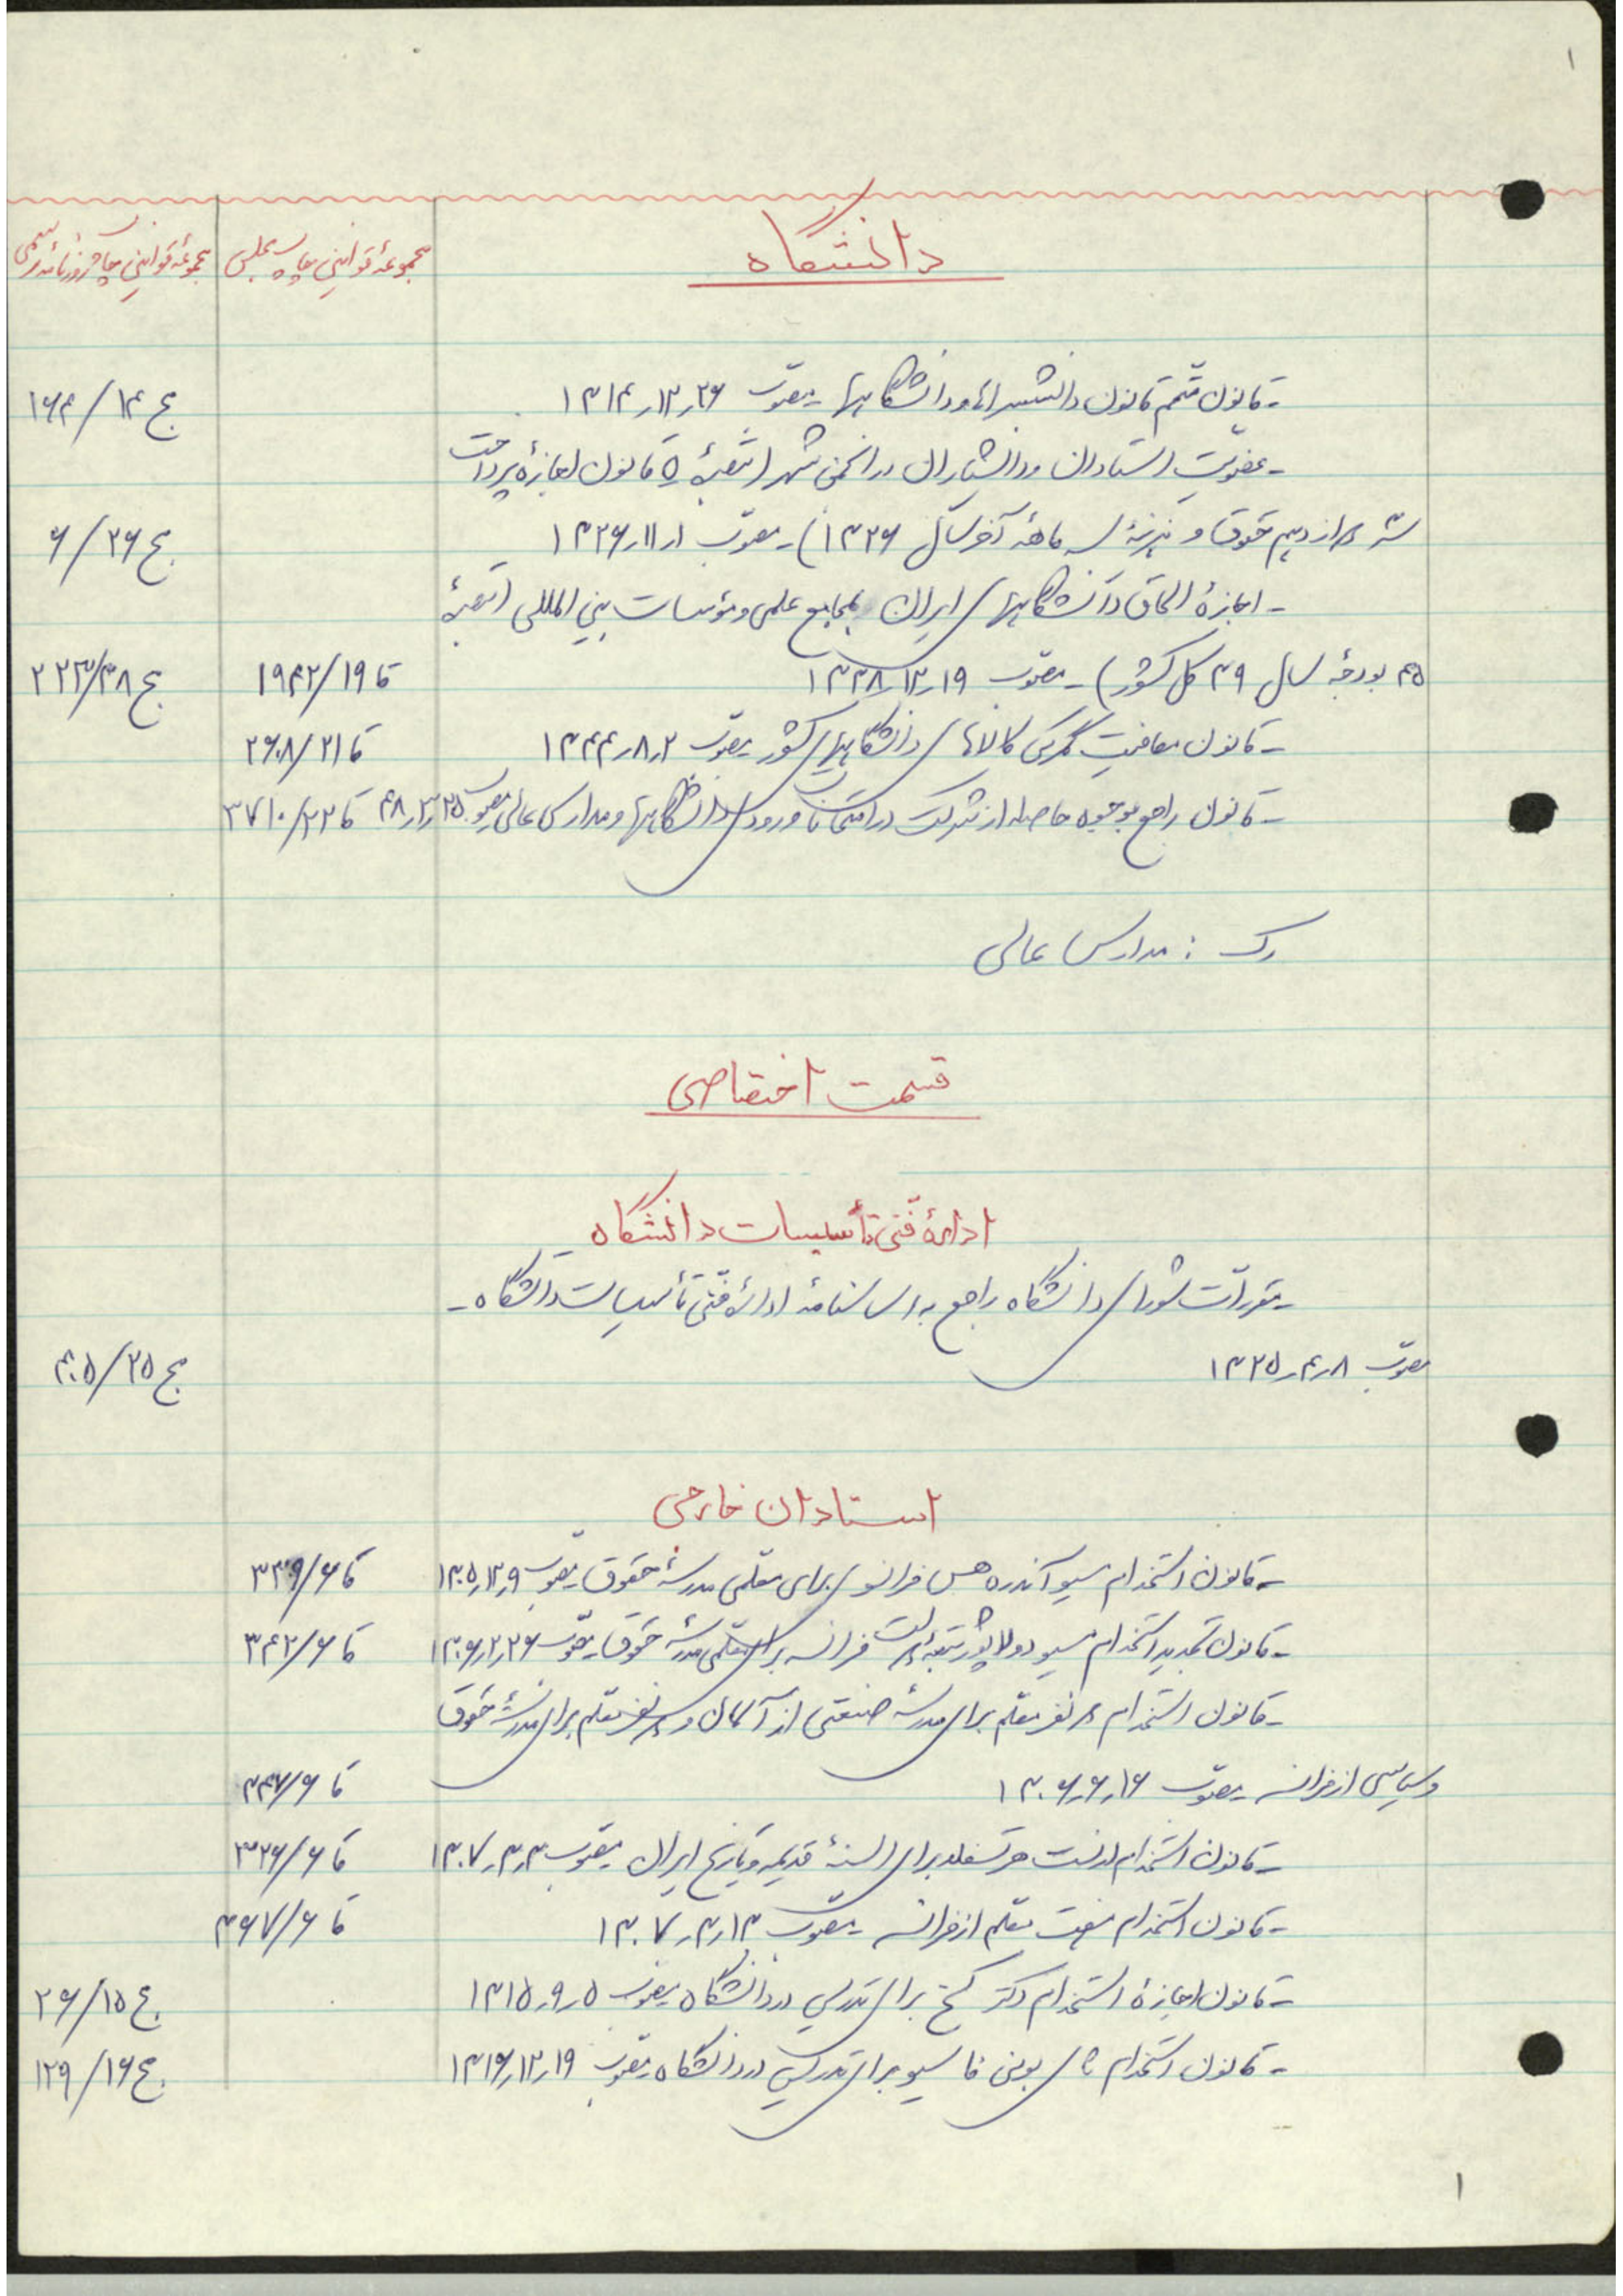 ۱
دانشگاه
مجموعهٔ قوانین چاپ مجلس
مجموعهٔ قوانین چاپ روزنامه رسمی
- قانون متمّم قانون دانشسراها و دانشگاهها - مصوّب ۲۶ر۱۲ر۱۳۱۴
ج ۱۴/۱۶۴
- عضویت استادان و دانشیاران در انجمن شهر (تبصرهٔ ۵ قانون اجازهٔ پرداخت
سه دوازدهم حقوق و هزینهٔ سه ماههٔ آخر سال ۱۳۲۶) - مصوّب ۱ر۱۱ر۱۳۲۶
ج ۲۶/۶
- اجازهٔ الحاق دانشگاههای ایران بمجامع علمی و مؤسسات بین المللی (تبصرهٔ
۴۵ بودجهٔ سال ۳۹ کل کشور) - مصوّب ۱۹ر۱۲ر۱۳۳۸
قا ۱۹/۱۹۴۲
ج ۳۸/۲۲۳
- قانون معافیت گمرکی کالاهای دانشگاههای کشور مصوّب ۲ر۸ر۱۳۴۴
قا ۲۱/۲۶۰۸
- قانون راجع بوجوه حاصله از شرکت در امتحانات ورودی دانشگاهها و مدارس عالی مصوب ۲۵ر۳ر۴۸
قا ۲۲/۳۷۱۰
رک : مدارس عالی
قسمت اختصاصی
ادارهٔ فنّی تأسیسات دانشگاه
- مقررّات شورای دانشگاه راجع به اساسنامهٔ ادارهٔ فنّی تأسیسات دانشگاه -
مصوّب ۸ر۴ر۱۳۲۵
ج ۲۵/۴۰۵
استادان خارجی
- قانون استخدام مسیو آندره هس فرانسوی برای معلمی مدرسهٔ حقوق مصوب ۹ر۱۲ر۱۳۰۵
قا ۶/۳۳۹
- قانون تجدید استخدام مسیو دولاپورت تبعهٔ دولت فرانسه برای معلمی مدرسهٔ حقوق مصوّب ۲۶ر۲ر۱۳۰۶
قا ۶/۳۴۲
- قانون استخدام نفر معلم برای مدرسهٔ صنعتی از آلمان و نفر معلم برای مدرسهٔ حقوق
و سیاسی از فرانسه - مصوّب ۱۶ر۶ر۱۳۰۶
قا ۶/۳۴۷
- قانون استخدام ارنست هرتسفلد برای السنهٔ قدیمه و تاریخ ایران مصوّب ۳ر۳ر۱۳۰۷
قا ۶/۳۲۶
- قانون استخدام هفت معلم از فرانسه - مصوّب ۱۳ر۳ر۱۳۰۷
قا ۶/۳۶۷
- قانون اجازهٔ استخدام دکتر گنج برای تدریس در دانشگاه مصوّب ۵ر۹ر۱۳۱۵
ج ۱۵/۲۶
- قانون استخدام برای تدریس در دانشگاه مصوّب ۱۹ر۱۲ر۱۳۱۶
ج ۱۶/۱۲۹
۱